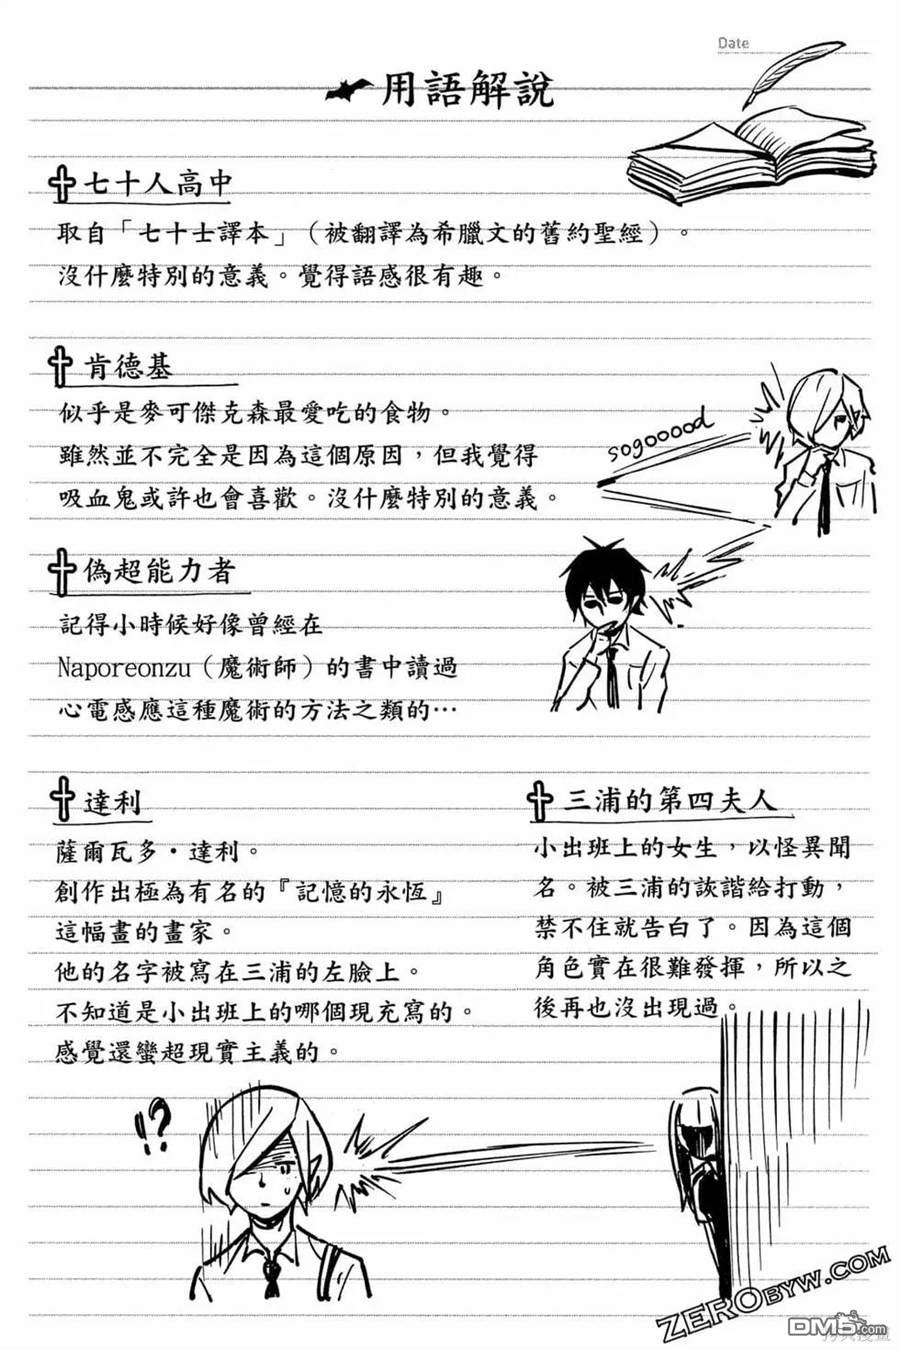 Date
用語解說
七十人高中
取自「七十士譯本」（被翻譯為希臘文的舊約聖經）。
沒什麼特別的意義。覺得語感很有趣。
肯德基
似乎是麥可傑克森最愛吃的食物。
雖然並不完全是因為這個原因，但我覺得
吸血鬼或許也會喜歡。沒什麼特別的意義。
sogooood
偽超能力者
記得小時候好像曾經在
Naporeonzu（魔術師）的書中讀過
心電感應這種魔術的方法之類的…
達利
薩爾瓦多·達利。
創作出極為有名的『記憶的永恆』
這幅畫的畫家。
他的名字被寫在三浦的左臉上。
不知道是小出班上的哪個現充寫的。
感覺還蠻超現實主義的。
三浦的第四夫人
小出班上的女生，以怪異聞
名。被三浦的詼諧給打動，
禁不住就告白了。因為這個
角色實在很難發揮，所以之
後再也沒出現過。
!?
ZEROBYW.COM
DM5.com